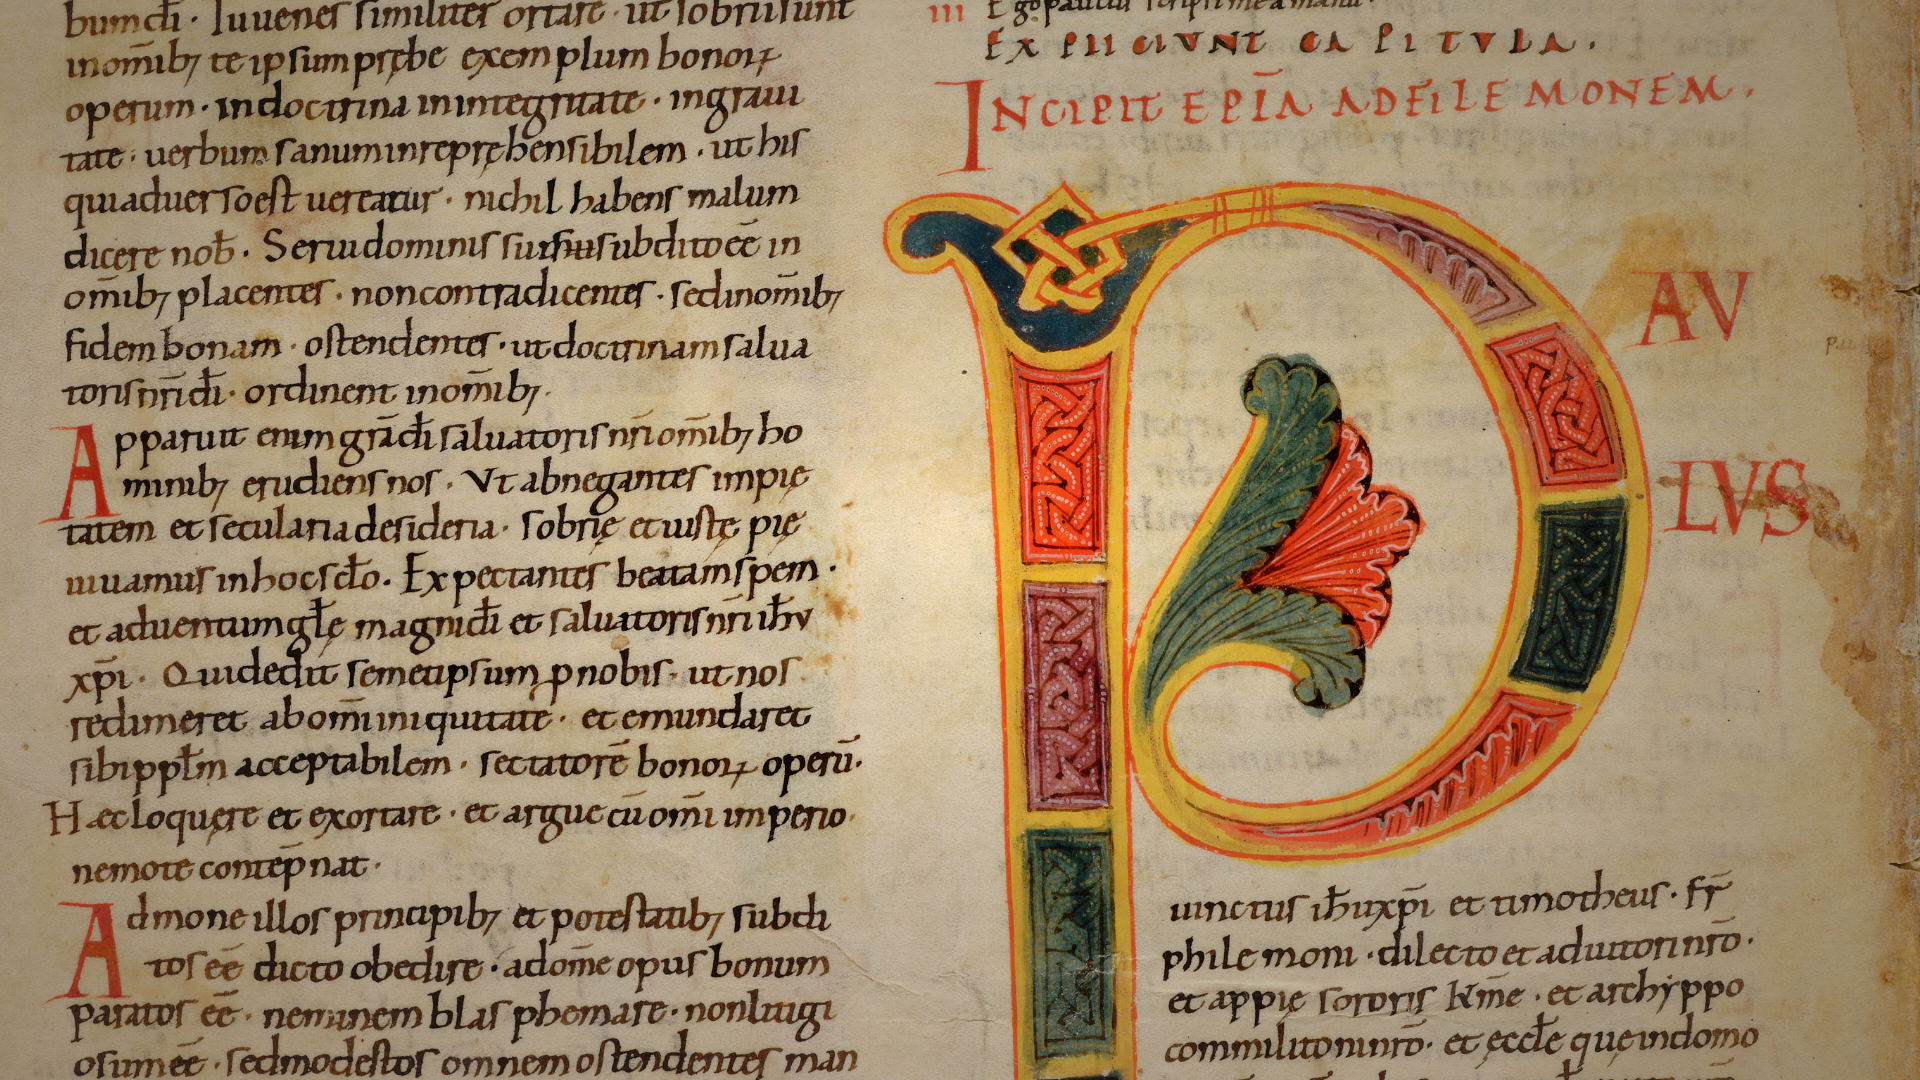 bumdī · Iuuenes similiter ortare · ut sobrii sunt
inom̄ibꝫ te ipsum prębe exemplum bonoꝝ
operum · indoctrina inintegritate · ingraui
tate · uerbum sanum inrepręhensibilem · ut his
quiaduerso est uereatur · nichil habens malum
dicere nob̄ · Serui dominis suis subditos eē in
om̄ibꝫ placentes · noncontradicentes · sedinom̄ibꝫ
fidem bonam · ostendentes · ut doctrinam salua
toris nr̄i dī · ordinent inom̄ibꝫ ·
Apparuit enim gr̄a dī saluatoris nr̄i om̄ibꝫ ho
minibꝫ erudiens nos · Vt abnegantes impię
tatem et secularia desideria · sobrię et iustę pię
uiuamus inhoc sc̄lo · Expectantes beatam spem ·
et aduentum gl̄ę magni dī et saluatoris nr̄i ih̄u
xp̄i · Qui dedit semetipsum ꝓ nobis · ut nos
redimeret abom̄i iniquitate · et emundaret
sibi ppl̄m acceptabilem · sectatorē bonoꝝ operū ·
Hęc loquęre et exortare · et argue cū om̄i imperio ·
nemo te contēpnat ·
Admone illos principibꝫ et potestatibꝫ subdi
tos eē dicto obedire · adom̄e opus bonum
paratos eē · neminem blasphemare · nonlitigi
osum eē · sed modestos omnem ostendentes man
III Ego paulus scripsi mea manu ·
EXPLICIUNT CAPITVLA ·
INCIPIT EPĪA ADFILEMONEM ·
P
AV
LVS
uinctus ih̄u xp̄i et timotheus · fr̄
phile moni · dilecto et adiutori nr̄o ·
et appię sororis km̄e · et archyppo
commilitoni nr̄o · et ęccl̄e quę indomo